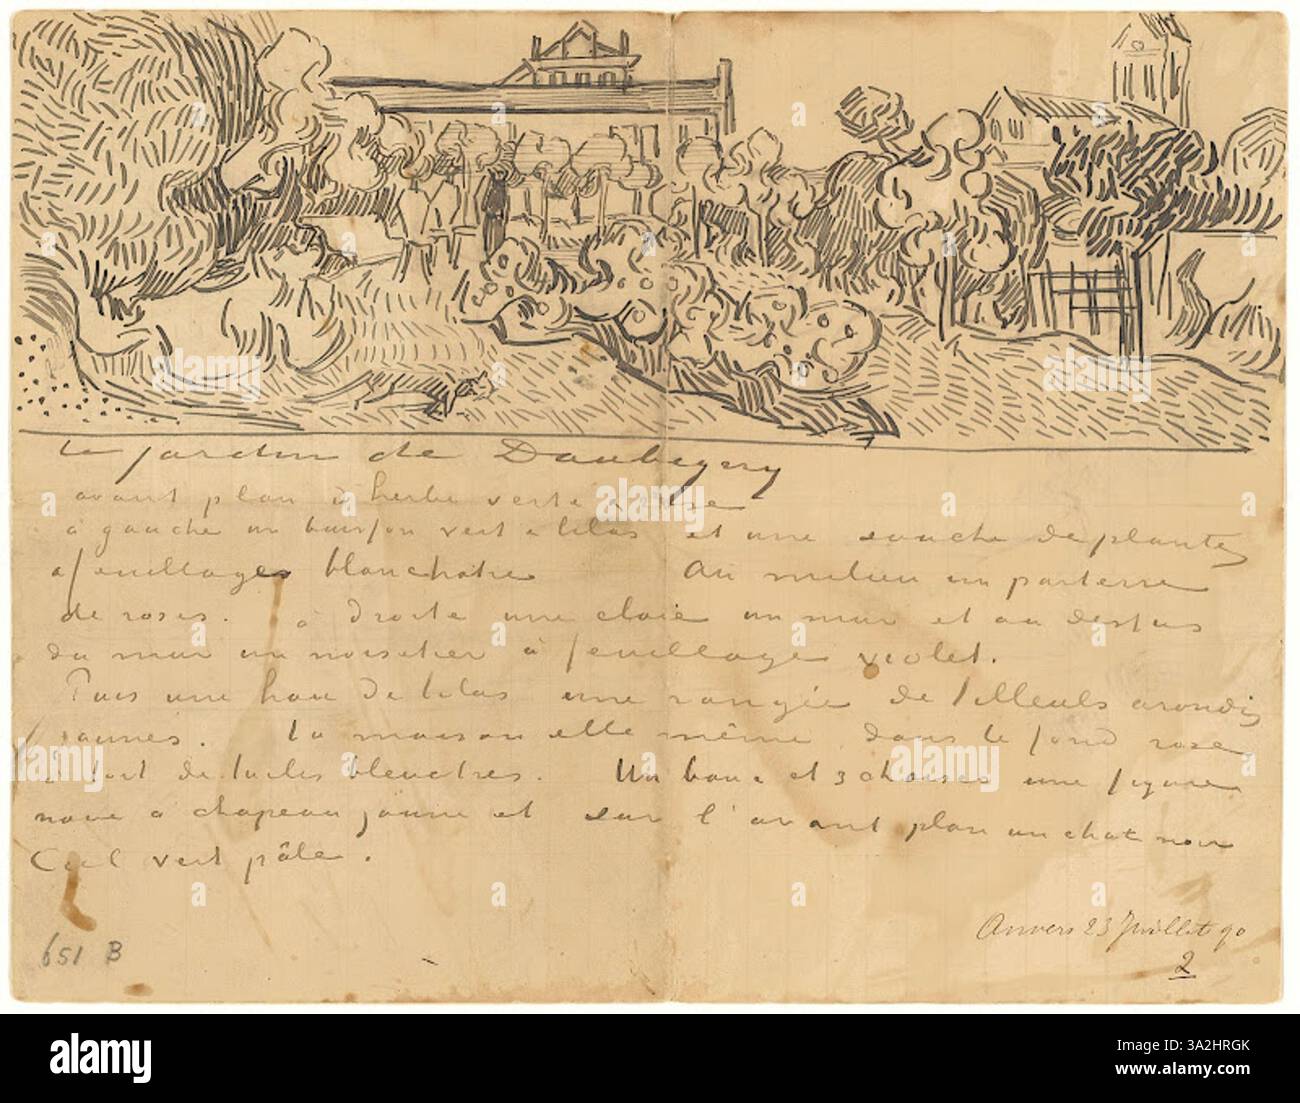 Le jardin de Daubigny
avant plan d'herbe verte & rose
à gauche un buisson vert & lilas et une souche de plantes
à feuillages blanchatres Au milieu un parterre
de roses. à droite une claie un mur et au dessus
du mur un noisetier à feuillage violet.
Puis une haie de lilas une rangée de tilleuls arrondis
jaunes. La maison elle même dans le fond rose
à toit de tuiles bleuatres. Un banc et 3 chaises une figure
noire à chapeau jaune et sur l'avant plan un chat noir
Ciel vert pâle.
Anvers 23 Juillet 90
2
651 B
alamy
Image ID: 3A2HRGK
www.alamy.com